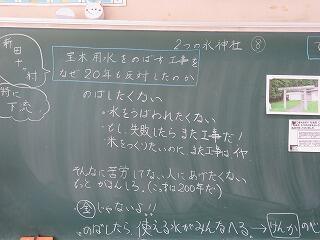 2つの水神社 ⑧
新田
十
村
特に
下流
玉木用水をのばす工事を
なぜ20年も反対したのか
のばしたくない
・水をうばわれたくない
・もし、失敗したらまた工事だ!
米をつくりたいのにまた工事はイヤ
そんなに苦労してない人にあげたくない
もっとがまんしろ。(こっちは200年だ)
全じゃないよ!!
のばしたら使える水がみんなへる。→けんかの